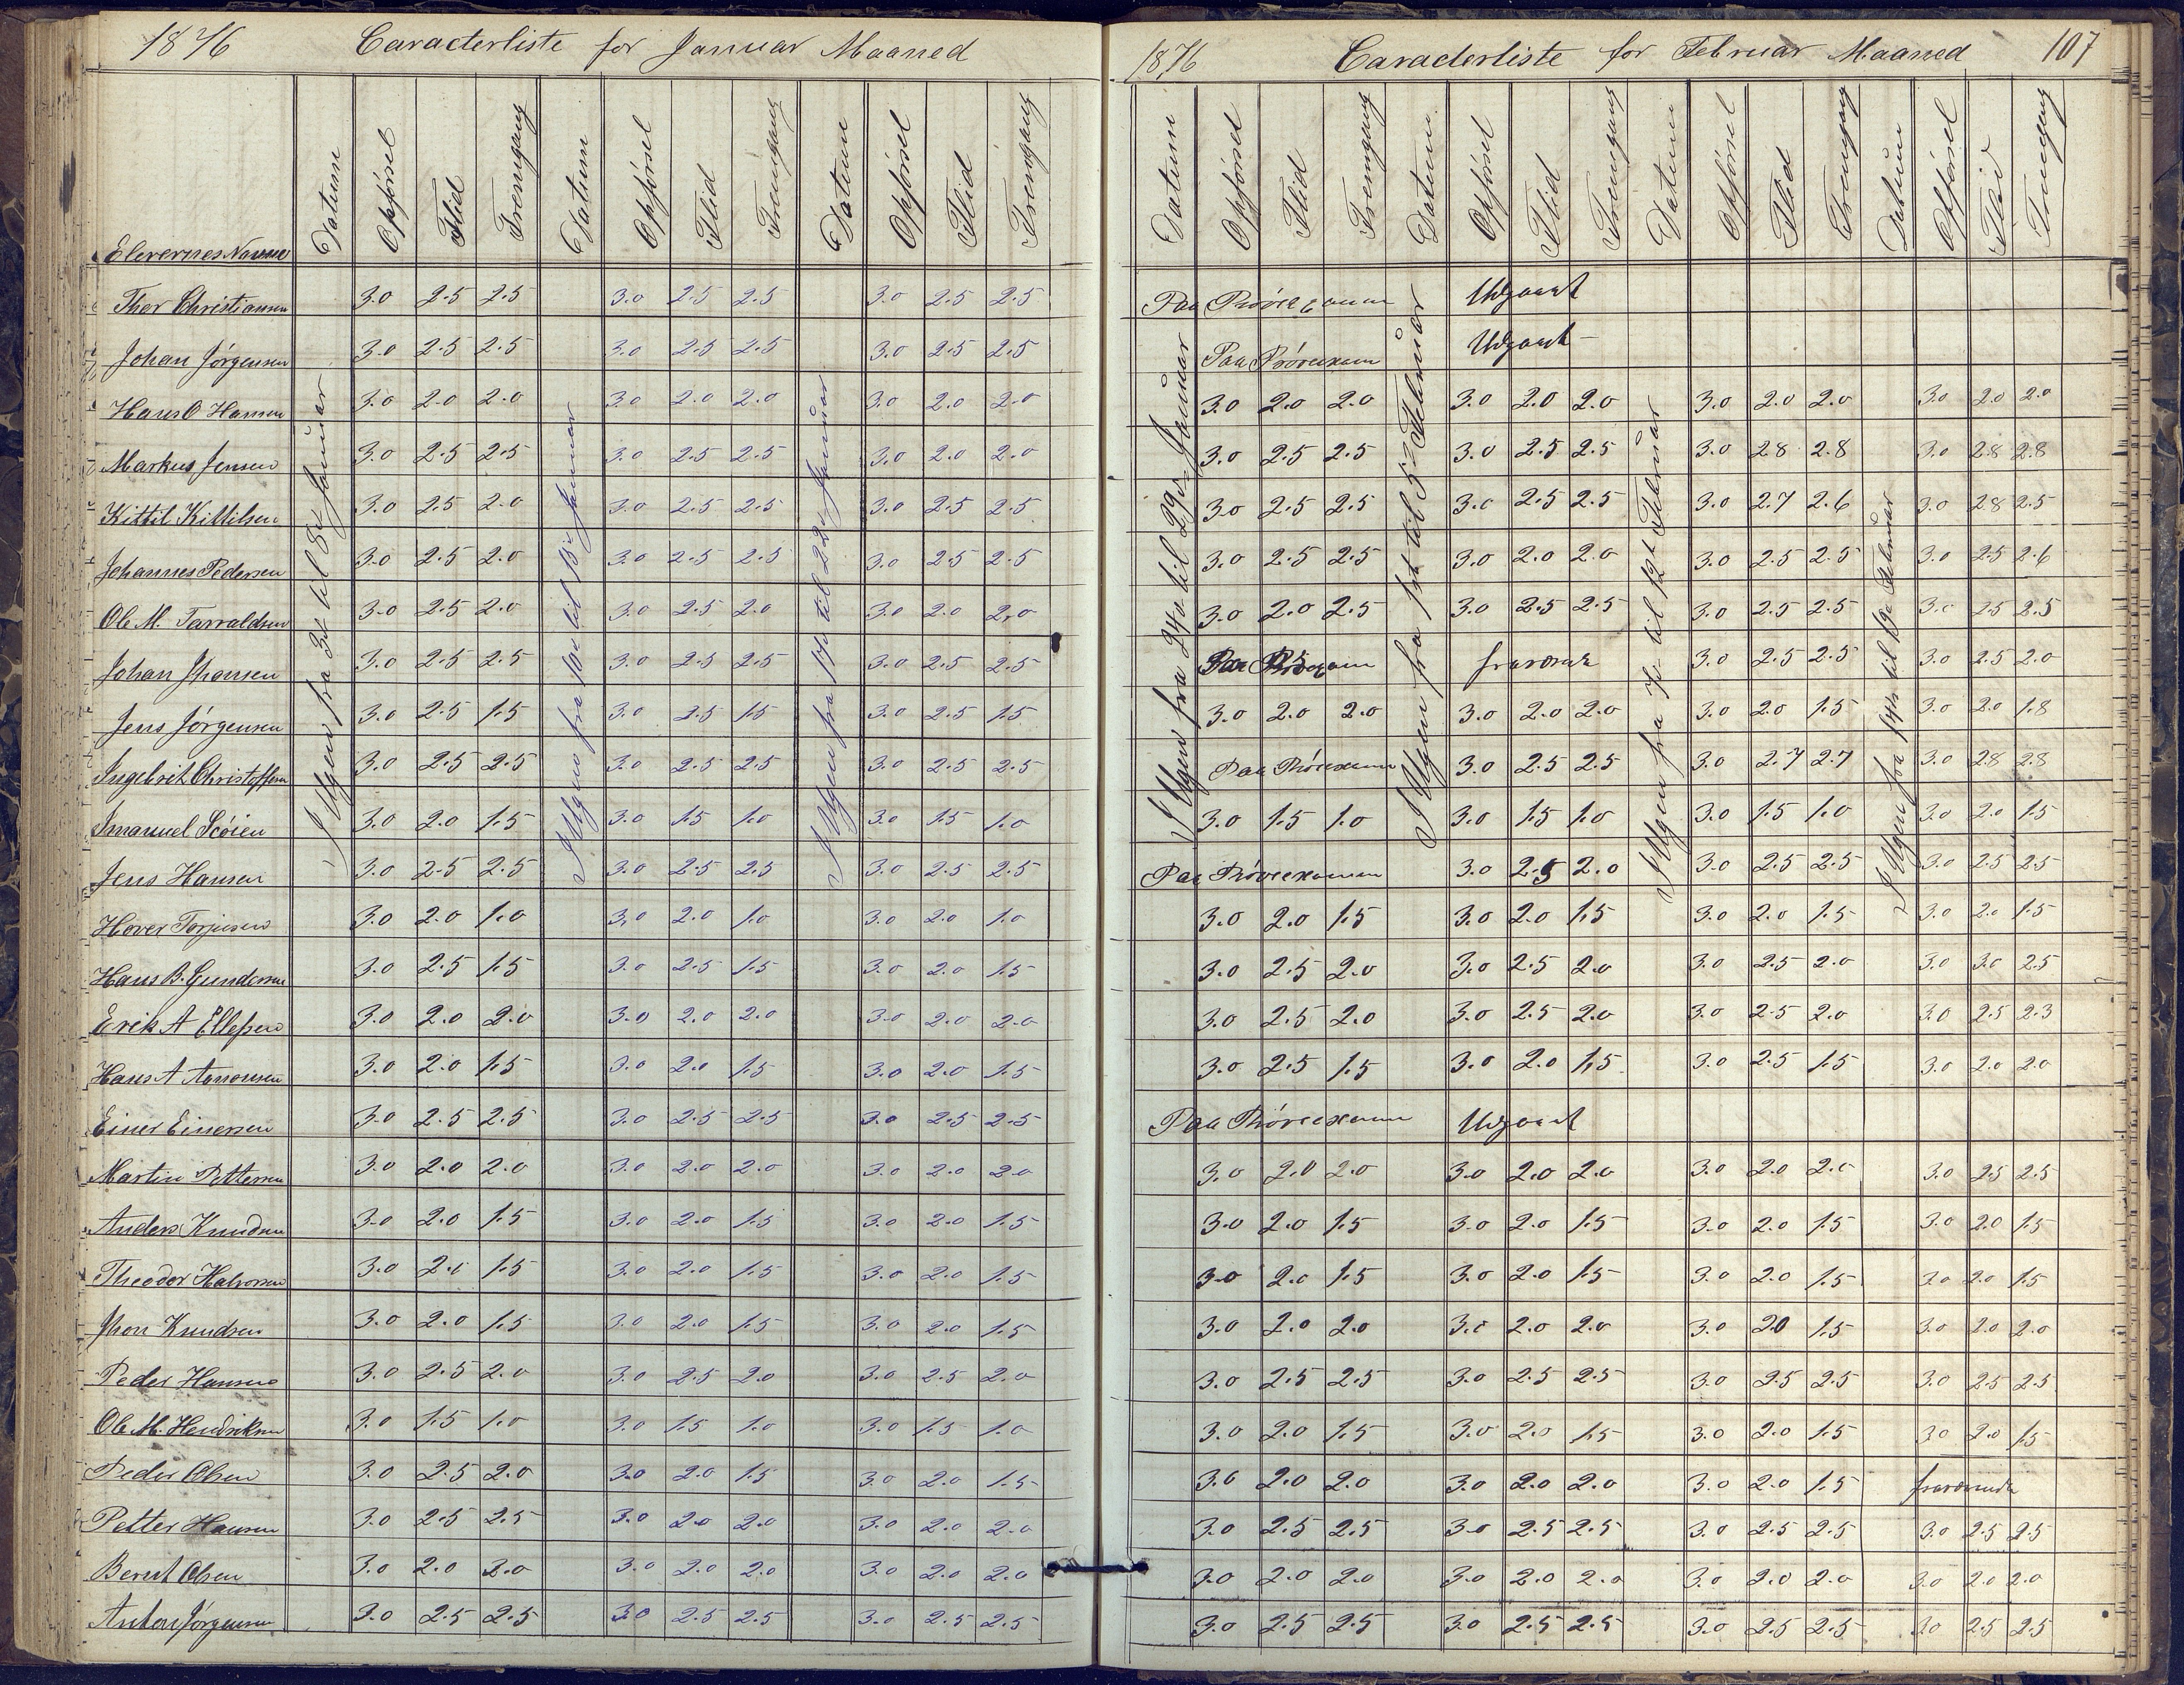 1876 Caracterliste for Januar Maaned
Elevernes Navne Datum Opførsel Flid Fremgang Datum Opførsel Flid Fremgang Datum Opførsel Flid Fremgang
I Ugen fra 3d til 8d Januar
I Ugen fra 10d til 15d Januar
I Ugen fra 17d til 22d Januar
Thor Christiansen 3.0 2.5 2.5 3.0 2.5 2.5 3.0 2.5 2.5
Johan Jørgensen 3.0 2.5 2.5 3.0 2.5 2.5 3.0 2.5 2.5
Hans O Hansen 3.0 2.0 2.0 3.0 2.0 2.0 3.0 2.0 2.0
Markus Jensen 3.0 2.5 2.5 3.0 2.5 2.5 3.0 2.0 2.0
Kittil Kittilsen 3.0 2.5 2.0 3.0 2.5 2.5 3.0 2.5 2.5
Johannes Pedersen 3.0 2.5 2.0 3.0 2.5 2.5 3.0 2.5 2.5
Ole M. Tarraldsen 3.0 2.5 2.0 3.0 2.5 2.0 3.0 2.0 2.0
Johan Jhansen 3.0 2.5 2.5 3.0 2.5 2.5 3.0 2.5 2.5
Jens Jørgensen 3.0 2.5 1.5 3.0 2.5 1.5 3.0 2.5 1.5
Ingebrit Christoffersen 3.0 2.5 2.5 3.0 2.5 2.5 3.0 2.5 2.5
Imanuel Scøien 3.0 2.0 1.5 3.0 1.5 1.0 3.0 1.5 1.0
Jens Hansen 3.0 2.5 2.5 3.0 2.5 2.5 3.0 2.5 2.5
Hover Torjusen 3.0 2.0 1.0 3.0 2.0 1.0 3.0 2.0 1.0
Hans B. Gundersen 3.0 2.5 1.5 3.0 2.5 1.5 3.0 2.0 1.5
Erik A Ellefsen 3.0 2.0 2.0 3.0 2.0 2.0 3.0 2.0 2.0
Hans A Aanonsen 3.0 2.0 1.5 3.0 2.0 1.5 3.0 2.0 1.5
Einer Einersen 3.0 2.5 2.5 3.0 2.5 2.5 3.0 2.5 2.5
Martin Pettersen 3.0 2.0 2.0 3.0 2.0 2.0 3.0 2.0 2.0
Anders Knudsen 3.0 2.0 1.5 3.0 2.0 1.5 3.0 2.0 1.5
Theodor Halvorsen 3.0 2.0 1.5 3.0 2.0 1.5 3.0 2.0 1.5
Jhon Knudsen 3.0 2.0 1.5 3.0 2.0 1.5 3.0 2.0 1.5
Peder Hansen 3.0 2.5 2.0 3.0 2.5 2.0 3.0 2.5 2.0
Ole M. Hendriksen 3.0 1.5 1.0 3.0 1.5 1.0 3.0 1.5 1.0
Peder Olsen 3.0 2.5 2.0 3.0 2.0 1.5 3.0 2.0 1.5
Petter Hansen 3.0 2.5 2.5 3.0 2.0 2.0 3.0 2.0 2.0
Bernt Olsen 3.0 2.0 2.0 3.0 2.0 2.0 3.0 2.0 2.0
Anton Jørgensen 3.0 2.5 2.5 3.0 2.5 2.5 3.0 2.5 2.5
1876 Caracterliste for Februar Maaned 107
Datum Opførsel Flid Fremgang Datum Opførsel Flid Fremgang Datum Opførsel Flid Fremgang Datum Opførsel Flid Fremgang
I Ugen fra 24d til 29d Januar
I Ugen fra 1st til 5d Februar
I Ugen fra 7d til 12t Februar
I Ugen fra 14d til 19d Februar
Paa Prøveexamen Udgaaet
Paa Prøveexamen Udgaaet
3.0 2.0 2.0 3.0 2.0 2.0 3.0 2.0 2.0 3.0 2.0 2.0
3.0 2.5 2.5 3.0 2.5 2.5 3.0 2.8 2.8 3.0 2.8 2.8
3.0 2.5 2.5 3.0 2.5 2.5 3.0 2.7 2.6 3.0 2.8 2.5
3.0 2.5 2.5 3.0 2.0 2.0 3.0 2.5 2.5 3.0 2.5 2.6
3.0 2.0 2.5 3.0 2.5 2.5 3.0 2.5 2.5 3.0 2.5 2.5
fraværende 3.0 2.5 2.5 3.0 2.5 2.0
3.0 2.0 2.0 3.0 2.0 2.0 3.0 2.0 1.5 3.0 2.0 1.8
Paa Prøveexamen 3.0 2.5 2.5 3.0 2.7 2.7 3.0 2.8 2.8
3.0 1.5 1.0 3.0 1.5 1.0 3.0 1.5 1.0 3.0 2.0 1.5
Paa Prøveexamen 3.0 2.5 2.0 3.0 2.5 2.5 3.0 2.5 2.5
3.0 2.0 1.5 3.0 2.0 1.5 3.0 2.0 1.5 3.0 2.0 1.5
3.0 2.5 2.0 3.0 2.5 2.0 3.0 2.5 2.0 3.0 3.0 2.5
3.0 2.5 2.0 3.0 2.5 2.0 3.0 2.5 2.0 3.0 2.5 2.3
3.0 2.5 1.5 3.0 2.0 1.5 3.0 2.5 1.5 3.0 2.0 2.0
Paa Prøveexamen Udgaaet
3.0 2.0 2.0 3.0 2.0 2.0 3.0 2.0 2.0 3.0 2.5 2.5
3.0 2.0 1.5 3.0 2.0 1.5 3.0 2.0 1.5 3.0 2.0 1.5
3.0 2.0 1.5 3.0 2.0 1.5 3.0 2.0 1.5 3.0 2.0 1.5
3.0 2.0 2.0 3.0 2.0 2.0 3.0 20 1.5 3.0 2.0 2.0
3.0 2.5 2.5 3.0 2.5 2.5 3.0 2.5 2.5 3.0 2.5 2.5
3.0 2.0 1.5 3.0 2.0 1.5 3.0 2.0 1.5 3.0 2.0 1.5
3.0 2.0 2.0 3.0 2.0 2.0 3.0 2.0 1.5 fraværende
3.0 2.5 2.5 3.0 2.5 2.5 3.0 2.5 2.5 3.0 2.5 2.5
3.0 2.0 2.0 3.0 2.0 2.0 3.0 2.0 2.0 3.0 2.0 2.0
3.0 2.5 2.5 3.0 2.5 2.5 3.0 2.5 2.5 3.0 2.5 2.5